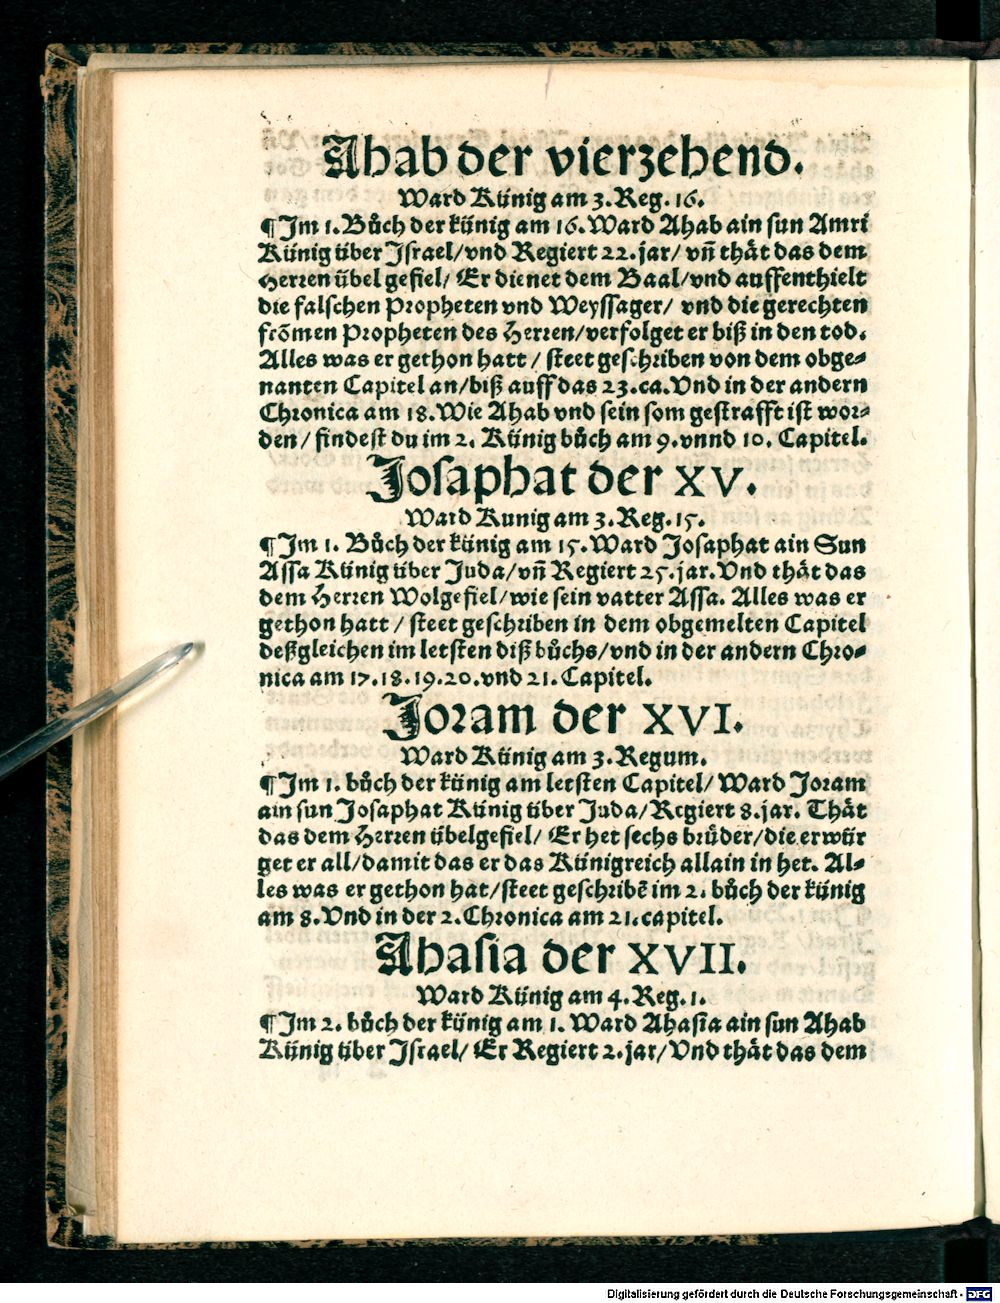 Ahab der vierzehend.
Ward Künig am 3. Reg. 16.
¶ Im 1. Bůch der künig am 16. Ward Ahab ain sun Amri
Künig über Israel/vnd Regiert 22. jar/ vñ thät das dem
Herren übel gefiel/ Er dienet dem Baal/vnd auffenthielt
die falschen Propheten vnd Weyssager/ vnd die gerechten
frõmen Propheten des Herren/verfolget er biß in den tod.
Alles was er gethon hatt / steet geschriben von dem obge-
nanten Capitel an/biß auff das 23. ca. Vnd in der andern
Chronica am 18. Wie Ahab vnd sein som gestrafft ist wor-
den/ findest du im 2. Künig bůch am 9. vnnd 10. Capitel.
Josaphat der XV.
Ward Kunig am 3. Reg. 15.
¶ Im 1. Bůch der künig am 15. Ward Josaphat ain Sun
Assa Künig über Juda/vñ Regiert 25. jar. Vnd thät das
dem Herren Wolgefiel/wie sein vatter Assa. Alles was er
gethon hatt / steet geschriben in dem obgemelten Capitel
deßgleichen im letsten diß bůchs/vnd in der andern Chro-
nica am 17. 18. 19. 20. vnd 21. Capitel.
Joram der XVI.
Ward Künig am 3. Regum.
¶ Im 1. bůch der künig am letsten Capitel/ Ward Joram
ain sun Josaphat Künig über Juda/Regiert 8. jar. Thät
das dem Herren übelgefiel/ Er het sechs brüder/die erwür
get er all/damit das er das Künigreich allain in het. Al-
les was er gethon hat/steet geschribẽ im 2. bůch der künig
am 8. Vnd in der 2. Chronica am 21. capitel.
Ahasia der XVII.
Ward Künig am 4. Reg. 1.
¶ Im 2. bůch der künig am 1. Ward Ahasia ain sun Ahab
Künig über Israel/ Er Regiert 2. jar/ Vnd thät das dem
Digitalisierung gefördert durch die Deutsche Forschungsgemeinschaft - DFG